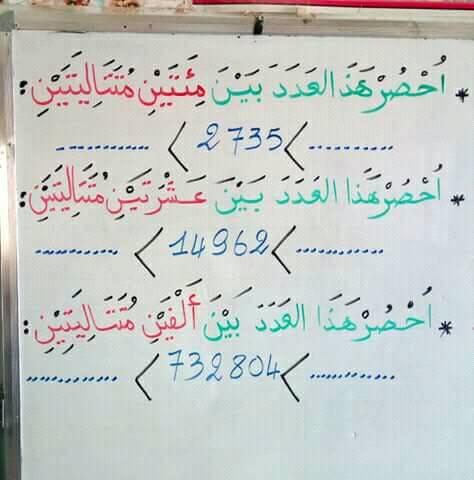 * اُحْصُرْ هَذَا العَدَدَ بَيْنَ مِئَتَيْنِ مُتَتَالِيَتَيْنِ :
........... < 2735 < ...........
* اُحْصُرْ هَذَا العَدَدَ بَيْنَ عَشْرَتَيْنِ مُتَتَالِيَتَيْنِ :
........... < 14962 < ...........
* اُحْصُرْ هَذَا العَدَدَ بَيْنَ أَلْفَيْنِ مُتَتَالِيَتَيْنِ :
........... < 732804 < ...........